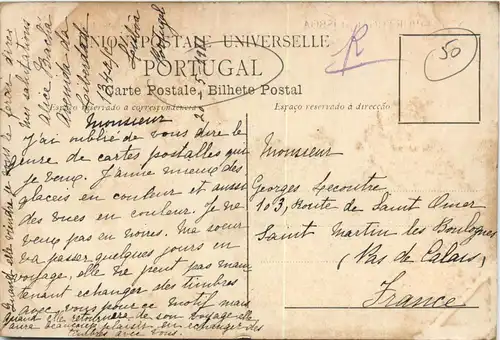 UNION POSTALE UNIVERSELLE
PORTUGAL
Carte Postale, Bilhete Postal
Espaço reservado á correspondencia
Espaço reservado á direcção
R
50
Monsieur
J'ai oublié de vous dire le
genre de cartes postales que
je veux. J'aime mieux des
glacées en couleur et aussi
des vues en couleur. Je ne
veux pas en noires. Ma sœur
va passer quelques jours en
voyage, elle ne peut pas main
tenant echanger des timbres
avec vous pour ce motif mais
quand elle retournera de son voyage elle
aura beaucoup plaisir en echanger des
timbres avec vous.
Monsieur
Georges Lecoutre
103, Route de Saint Omer
Saint Martin les Boulogne
(Pas de Calais)
France
mes salutations
Alice
Avenida da
Liberdade
Lisboa
Portugal